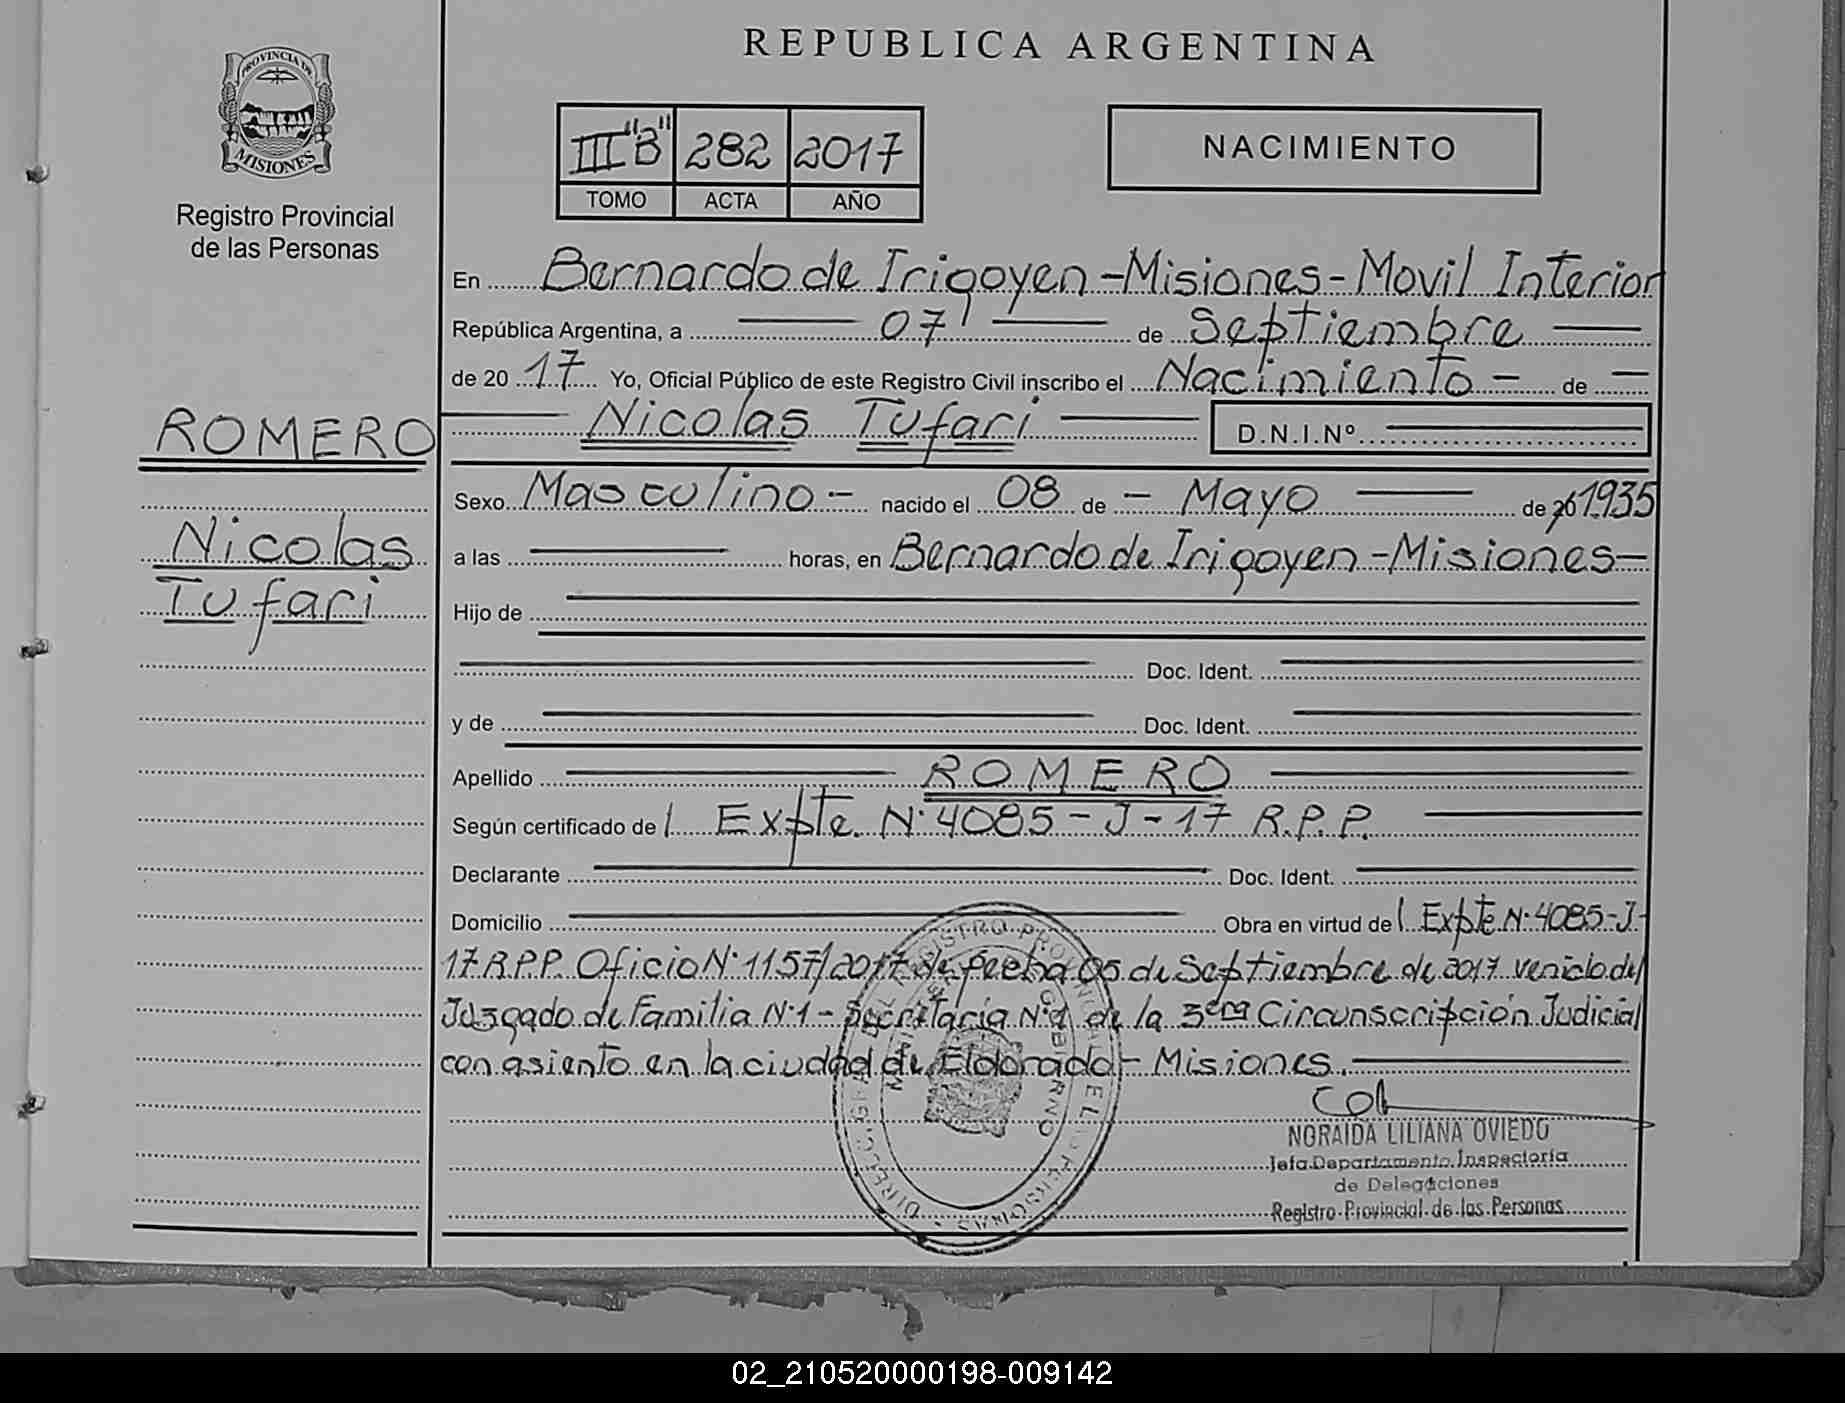 REPUBLICA ARGENTINA
PROVINCIA DE
MISIONES
Registro Provincial
de las Personas
III "B" 282 2017
TOMO ACTA AÑO
NACIMIENTO
En Bernardo de Irigoyen - Misiones - Movil Interior
República Argentina, a 07 de Septiembre
de 20 17 Yo, Oficial Público de este Registro Civil inscribo el Nacimiento - de
Nicolas Tufari D.N.I.Nº
ROMERO
Nicolas
Tufari
Sexo Masculino - nacido el 08 de - Mayo de 1935
a las horas, en Bernardo de Irigoyen - Misiones -
Hijo de
Doc. Ident.
y de Doc. Ident.
Apellido ROMERO
Según certificado de Expte. N° 4085 - J - 17 R.P.P.
Declarante Doc. Ident.
Domicilio Obra en virtud de Expte N° 4085-J-
17 R.P.P. Oficio N° 1157/2017 de fecha 05 de Septiembre de 2017 venido del
Juzgado de Familia N° 1 - Secretaría N° 1 de la 3era Circunscripción Judicial
con asiento en la ciudad de Eldorado - Misiones.
NORAIDA LILIANA OVIEDO
Jefa Departamento Inspectoria
de Delegaciones
Registro Provincial de las Personas
02_210520000198-009142